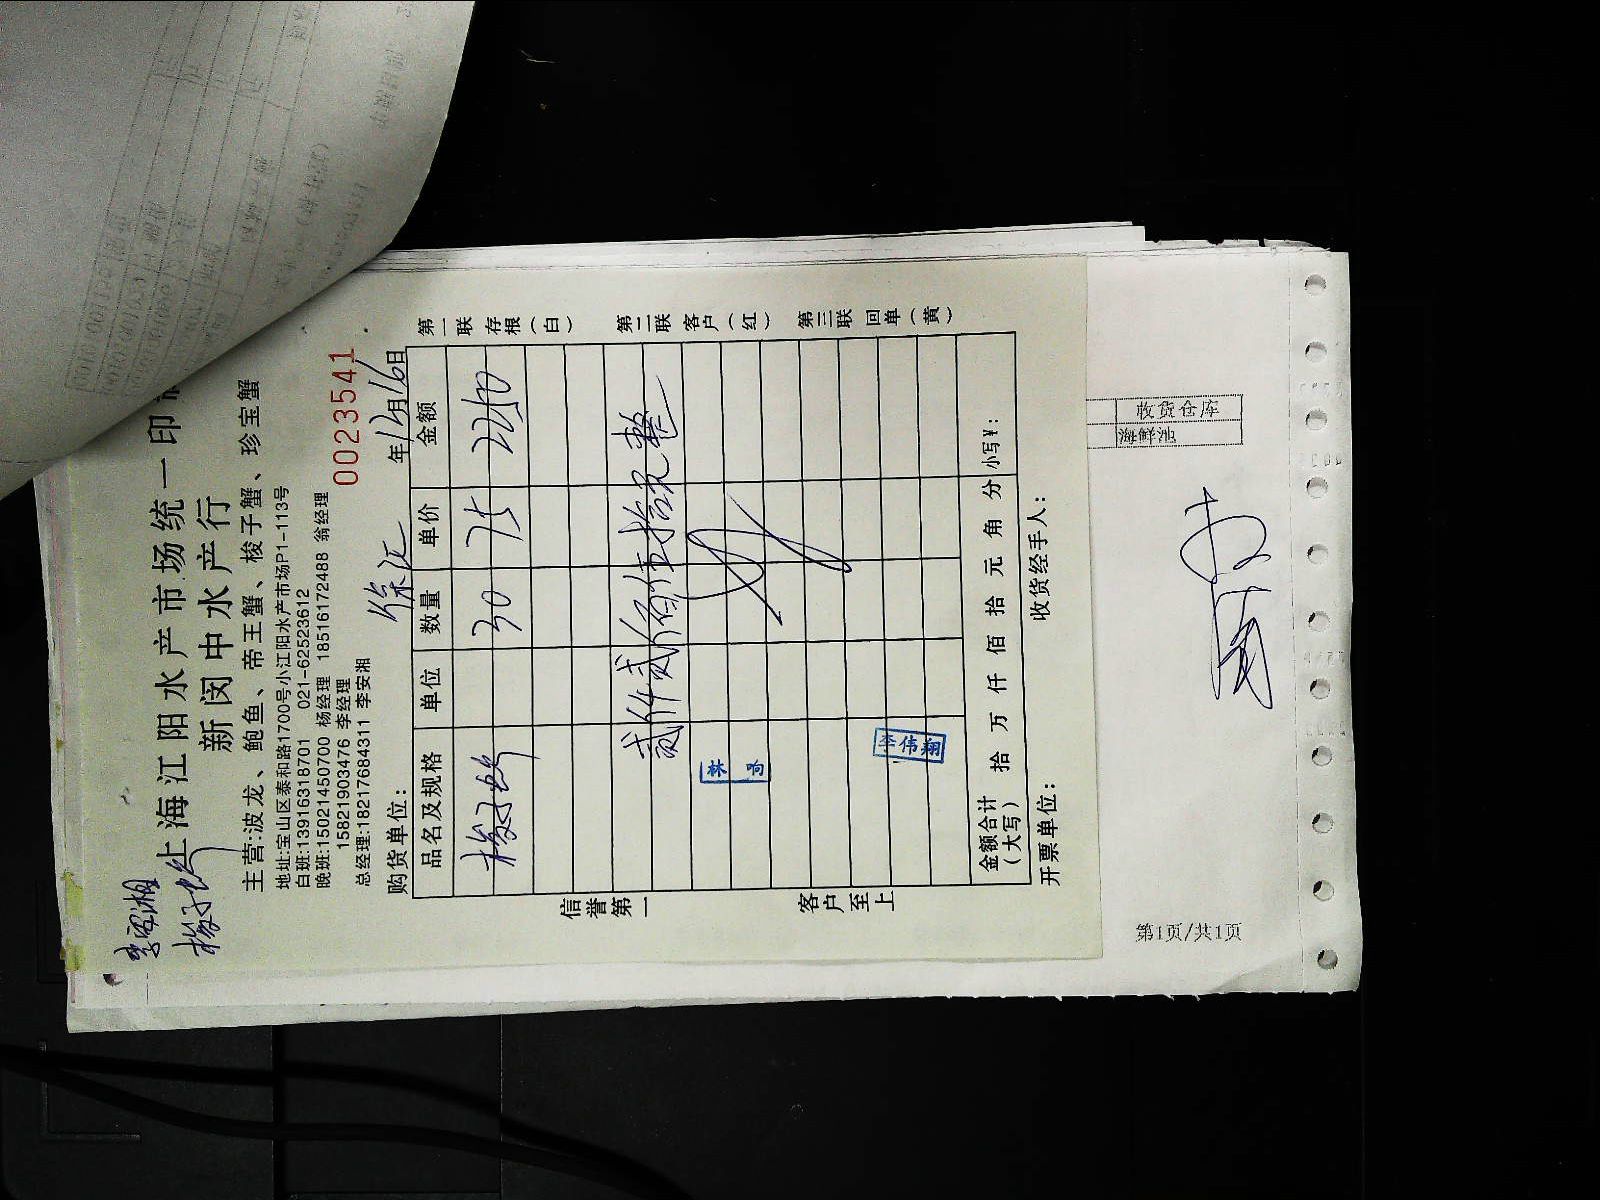 李安湘
梭子蟹
上海江阳水产市场统一印
新闵中水产行
主营:波龙、鲍鱼、帝王蟹、梭子蟹、珍宝蟹
地址:宝山区泰和路1700号小江阳水产市场P1-113号
白班:13916318701 021-62523612
晚班:15021450700 杨经理 18516172488 翁经理
15821903476 李经理
总经理:18217684311 李安湘
0023541
购货单位: 徐汇 年12月16日
品名及规格 单位 数量 单价 金额
梭子蟹 30 75 2250
贰仟贰佰伍拾元整
林 响
李伟翔
金额合计(大写) 拾 万 仟 佰 拾 元 角 分 小写¥:
开票单位: 收货经手人:
信誉第一
客户至上
第一联 存根(白)
第二联 客户(红)
第三联 回单(黄)
收货仓库
海鲜池
第1页/共1页